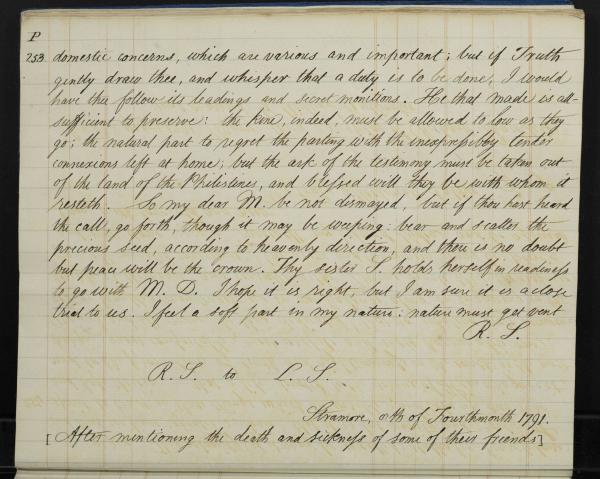 P
253 domestic concerns, which are various and important; but if Truth
gently draw thee, and whisper that a duty is to be done, I would
have thee follow its leadings and secret monitions. He that made is all-
sufficient to preserve: the kine, indeed, must be allowed to low as they
go; the natural part to regret the parting with the inexpressibly tender
connexions left at home; but the ark of the testimony must be taken out
of the land of the Philistines, and blessed will they be with whom it
resteth. So my dear M. be not dismayed, but if thou hast heard
the call, go forth, though it may be weeping: bear and scatter the
precious seed, according to heavenly direction, and there is no doubt
but peace will be the crown. Thy sister S. holds herself in readiness
to go with M. D. I hope it is right, but I am sure it is a close
trial to us. I feel a soft part in my nature: nature must get vent
R. S.
R. S. to L. S.
Stramore, of Fourthmonth 1791.
[After mentioning the death and sickness of some of their friends]